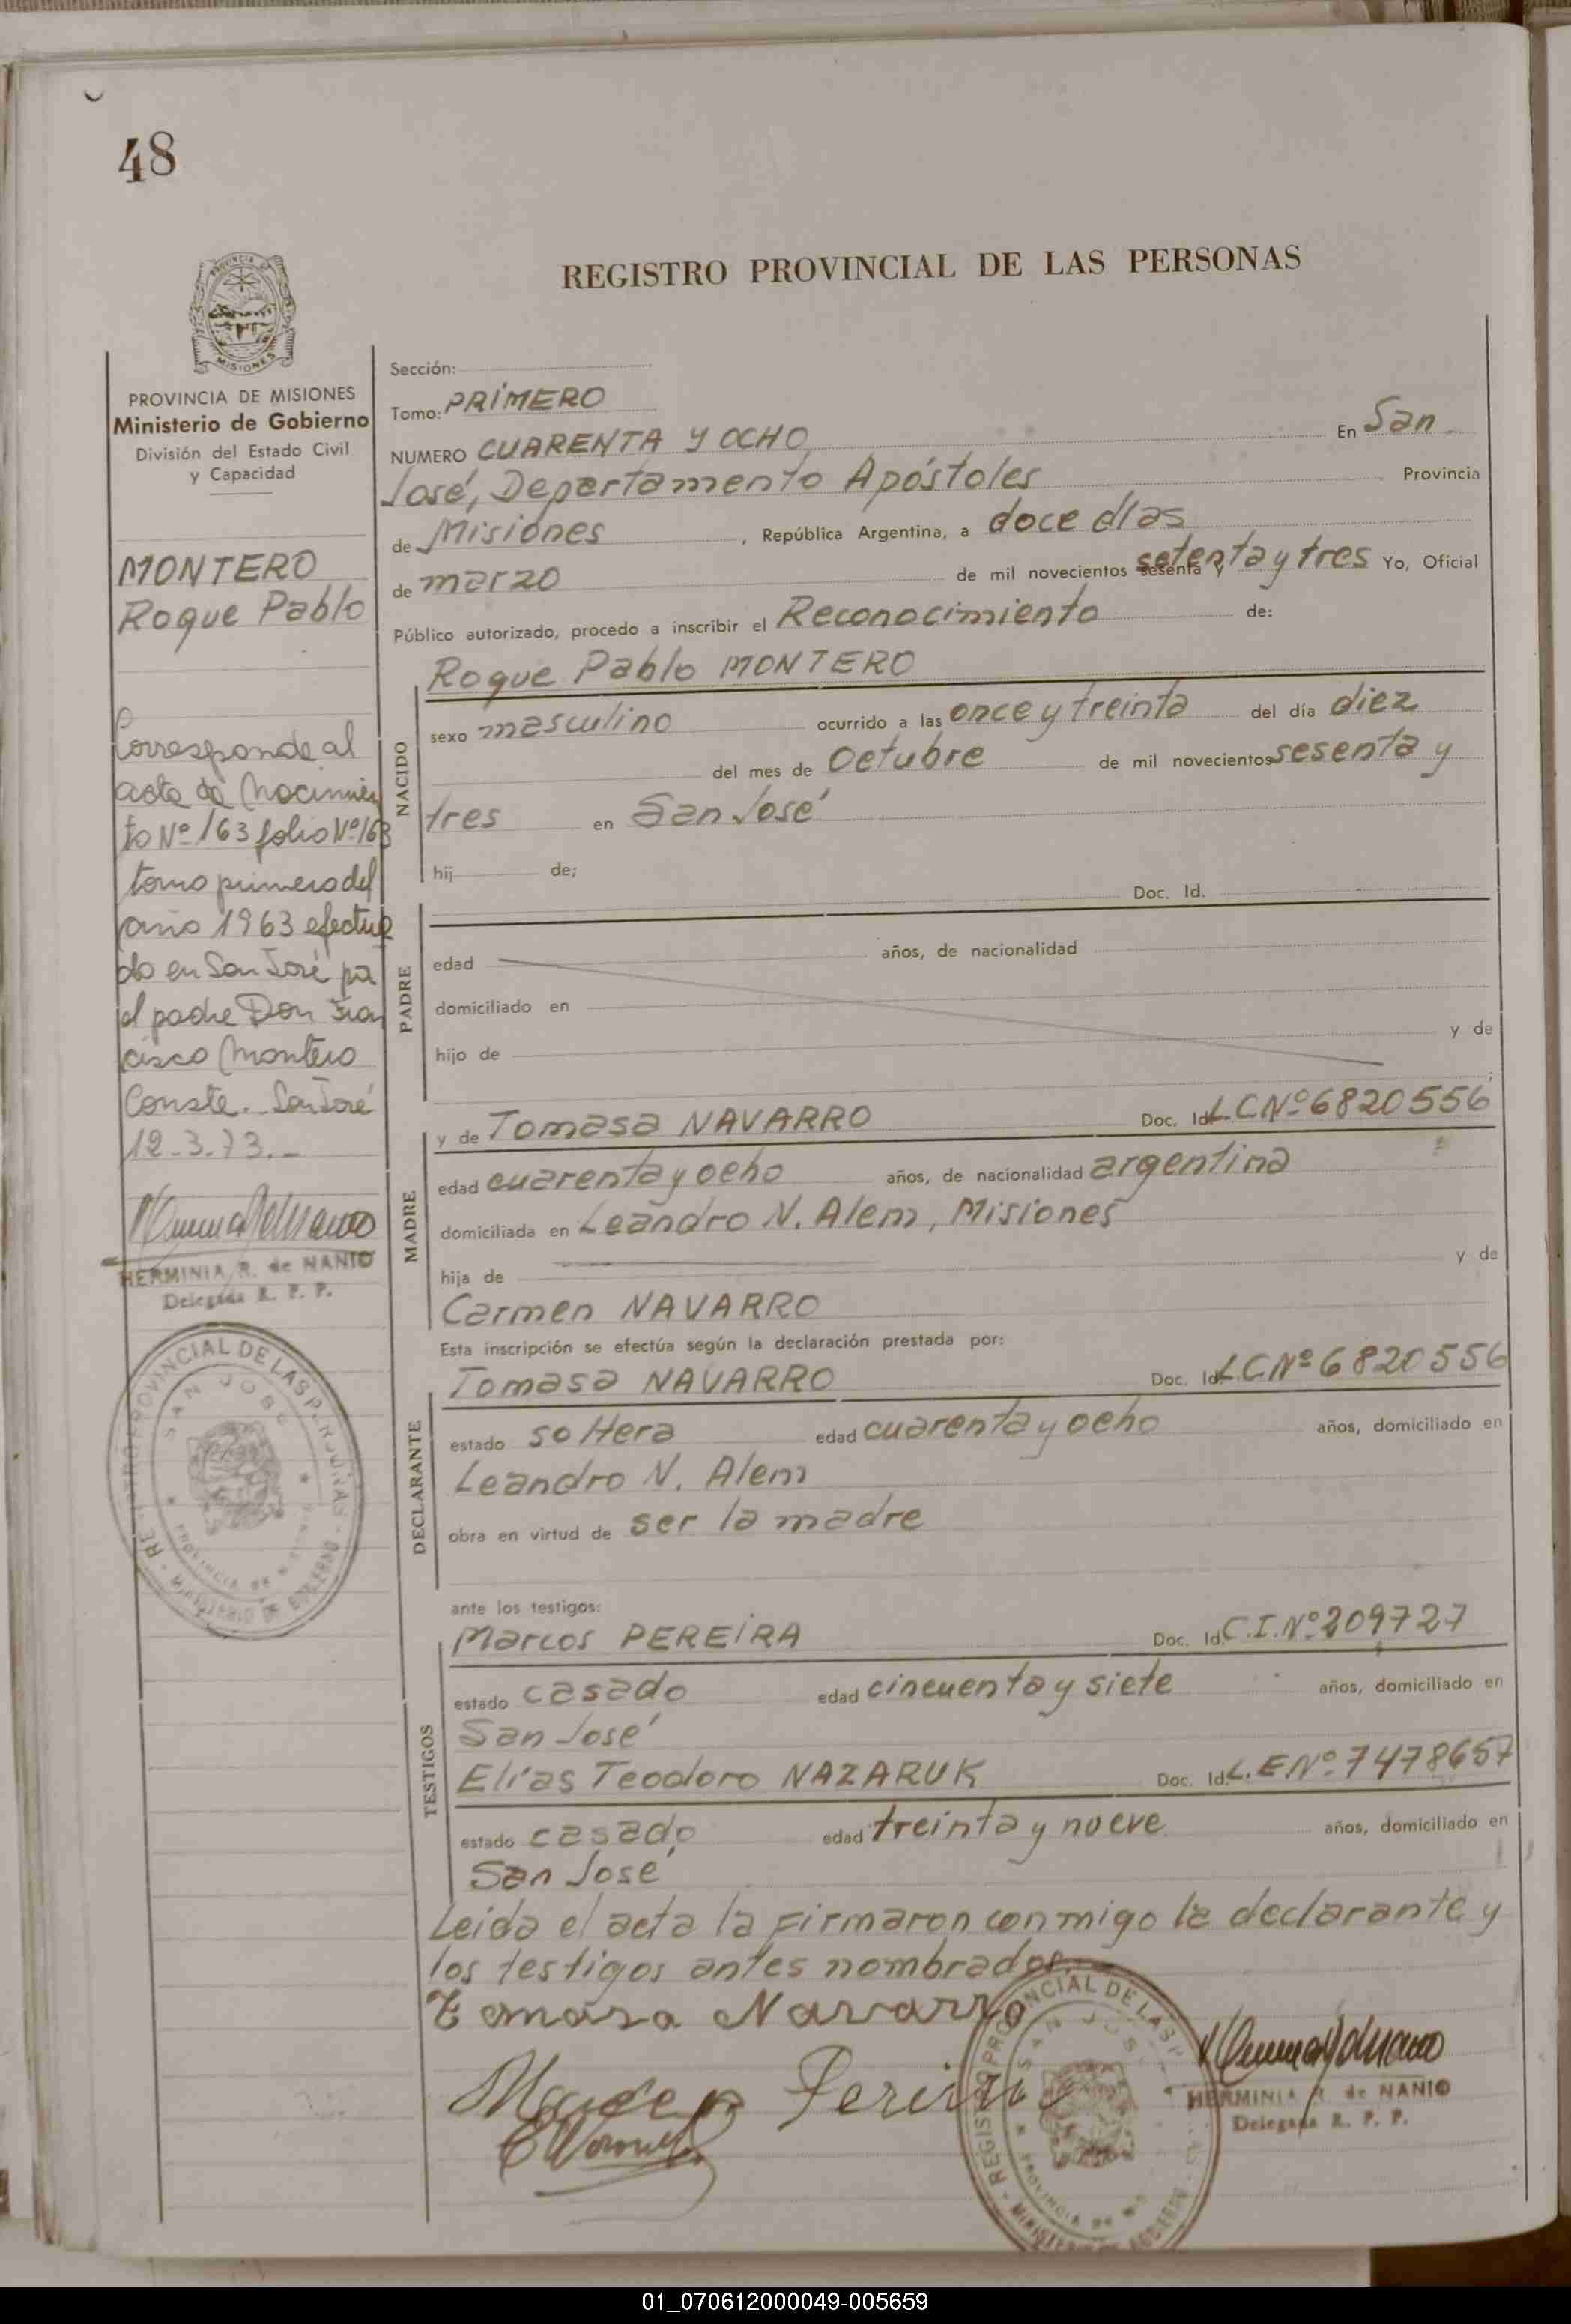 48
REGISTRO PROVINCIAL DE LAS PERSONAS
PROVINCIA DE MISIONES
MISIONES
PROVINCIA DE MISIONES
Ministerio de Gobierno
División del Estado Civil
y Capacidad
MONTERO
Roque Pablo
Corresponde al
acta de Nacimien
to Nº 163 folio Nº 163
tomo primero del
año 1963 efectua
do en San José po
el padre Don Fran
cisco Montero
Conste. San José
12-3-73.-
HERMINIA R. de NANIO
Delegada R. P. P.
REGISTRO PROVINCIAL DE LAS PERSONAS
SAN JOSE
PROVINCIA DE MISIONES
MINISTERIO DE GOBIERNO
Sección:
Tomo: PRIMERO
NUMERO CUARENTA Y OCHO En San
José, Departamento Apóstoles Provincia
de Misiones, República Argentina, a doce días
de marzo de mil novecientos sesenta y setenta y tres Yo, Oficial
Público autorizado, procedo a inscribir el Reconocimiento de:
NACIDO
Roque Pablo MONTERO
sexo masculino ocurrido a las once y treinta del día diez
del mes de Octubre de mil novecientos sesenta y
tres en San José
hij de;
Doc. Id.
PADRE
edad años, de nacionalidad
domiciliado en
hijo de y de
;
MADRE
y de Tomasa NAVARRO Doc. Id. L.C.Nº 6820556
edad cuarenta y ocho años, de nacionalidad argentina
domiciliada en Leandro N. Alem, Misiones
hija de y de
Carmen NAVARRO
Esta inscripción se efectúa según la declaración prestada por:
DECLARANTE
Tomasa NAVARRO Doc. Id. L.C.Nº 6820556
estado soltera edad cuarenta y ocho años, domiciliado en
Leandro N. Alem
obra en virtud de ser la madre
ante los testigos:
TESTIGOS
Marcos PEREIRA Doc. Id. C.I.Nº 209727
estado casado edad cincuenta y siete años, domiciliado en
San José
Elías Teodoro NAZARUK Doc. Id. L.E.Nº 7478657
estado casado edad treinta y nueve años, domiciliado en
San José
Leida el acta la firmaron conmigo la declarante y
los testigos antes nombrados.
Tomasa Navarro
Pereira
HERMINIA R. de NANIO
Delegada R. P. P.
REGISTRO PROVINCIAL DE LAS P
SAN JOS
PROVINCIA DE MIS
MINISTERIO DE GOBIERNO
01_070612000049-005659